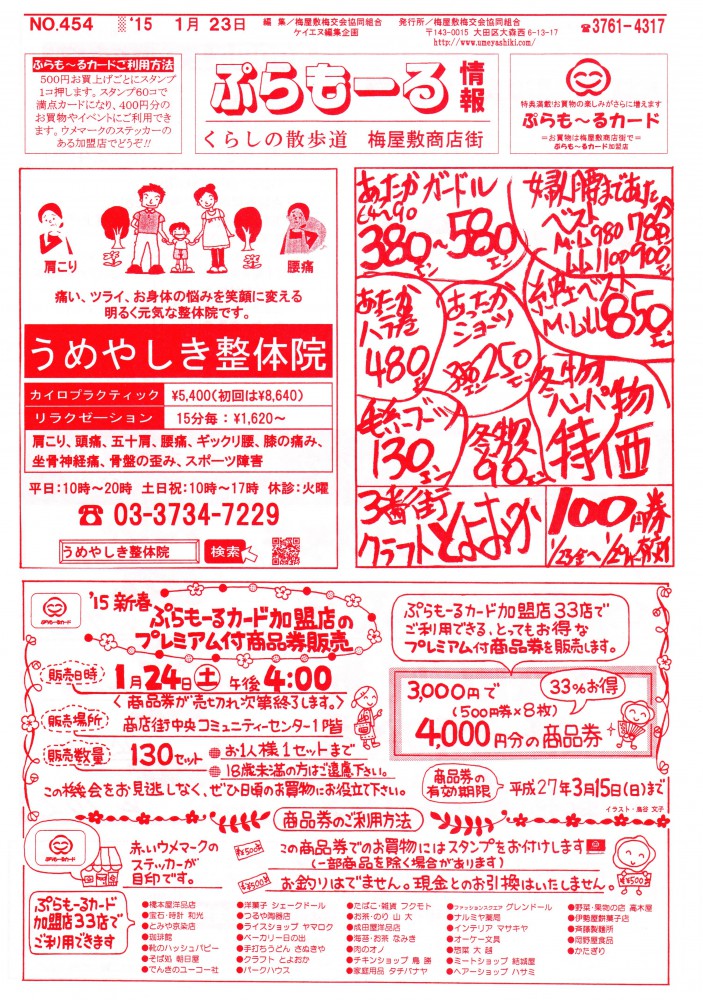 NO.454
'15 1月 23日
編 集／梅屋敷梅交会協同組合
ケイエヌ編集企画
発行所／梅屋敷梅交会協同組合
〒143-0015 大田区大森西6-13-17
http://www.umeyashiki.com/
☎3761-4317
ぷらも〜るカードご利用方法
500円お買上げごとにスタンプ
1コ押します。スタンプ60コで
満点カードになり、400円分の
お買物やイベントにご利用でき
ます。ウメマークのステッカーの
ある加盟店でどうぞ!!
ぷらもーる
情報
くらしの散歩道 梅屋敷商店街
特典満載!お買物の楽しみがさらに増えます
ぷらも〜るカード
=お買物は梅屋敷商店街で=
ぷらも〜るカード加盟店
肩こり
腰痛
痛い、ツライ、お身体の悩みを笑顔に変える
明るく元気な整体院です。
うめやしき整体院
カイロプラクティック ¥5,400(初回は¥8,640)
リラクゼーション 15分毎：¥1,620〜
肩こり、頭痛、五十肩、腰痛、ギックリ腰、膝の痛み、
坐骨神経痛、骨盤の歪み、スポーツ障害
平日:10時〜20時 土日祝:10時〜17時 休診:火曜
☎ 03-3734-7229
うめやしき整体院 検索
あったかガードル
64〜90
380〜580エン
婦人腰まであったか
ベスト
M・L 980 780
LL 1100 900エン
あったか
ハラ巻
480
あったか
ショーツ
250エン
ベスト
M・L・LL 850エン
毛糸ズーツ
130エン
冬物
90エン
冬物
ハンパ物
特価
3番街
クラフトとよおか
100円券
1/23金〜1/29木
'15 新春
ぷらもーるカード加盟店の
プレミアム付商品券販売
ぷらもーるカード
販売日時 1月24日土 午後4:00
〈商品券が売切れ次第終了します。〉
販売場所 商店街中央コミュニティーセンター1F階
販売数量 130セット
お1人様1セットまで
18歳未満の方はご遠慮下さい。
この機会をお見逃しなく、ぜひ日頃のお買物にお役立て下さい。
ぷらもーるカード加盟店33店で
ご利用できる、とってもお得な
プレミアム付商品券を販売します。
33%お得
3,000円で
(500円券×8枚)
4,000円分の商品券
商品券の
有効期限
平成27年3月15日(日)まで
イラスト・鳥谷 文子
商品券のご利用方法
ぷらもーるカード
赤いウメマークの
ステッカーが
目印です。
¥500
この商品券でのお買物にはスタンプをお付けします
(一部商品を除く場合があります)
¥500
お釣りはでません。現金とのお引換はいたしません。
¥500
ぷらもーるカード
加盟店33店で
ご利用できます
●橋本屋洋品店
●宝石・時計 和光
●とみや京染店
●珈琲館
●靴のハッシュパピー
●そば処 朝日屋
●でんきのユーコー社
●洋菓子 シェークドール
●つるや陶器店
●ライスショップ ヤマロク
●ベーカリー日の出
●手打ちうどん さぬきや
●クラフト とよおか
●パークハウス
●たばこ・雑貨 フクモト
●お茶・のり 山大
●成田屋洋品店
●海苔・お茶 なみき
●肉のオノ
●チキンショップ 鳥勝
●家庭用品 タチバナヤ
●ファッションスクエア グレンドール
●ナルミヤ薬局
●インテリア マサキヤ
●オーケー文具
●惣菜 大越
●ミートショップ 結城屋
●ヘアーショップ ハサミ
●野菜・果物の店 高木屋
●伊勢屋餅菓子店
●斉藤製麺所
●岡野屋食品
●かたぎり